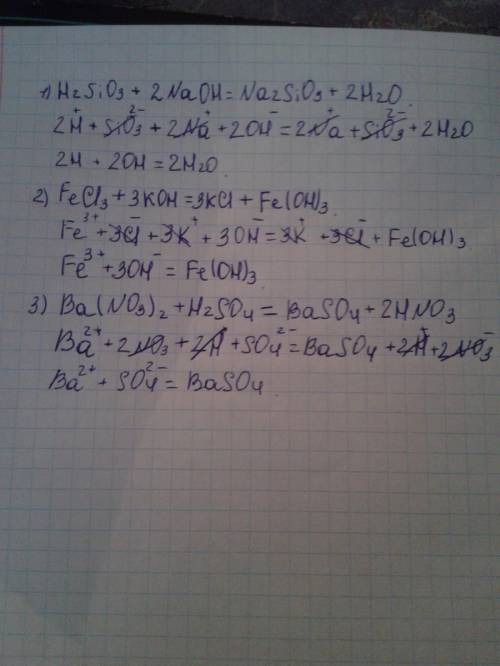 1) H2SiO3 + 2NaOH = Na2SiO3 + 2H2O.
2H⁺ + SiO3²⁻ + 2Na⁺ + 2OH⁻ = 2Na⁺ + SiO3²⁻ + 2H2O
2H + 2OH = 2H2O.
2) FeCl3 + 3KOH = 3KCl + Fe(OH)3.
Fe³⁺ + 3Cl⁻ + 3K⁺ + 3OH⁻ = 3K⁺ + 3Cl⁻ + Fe(OH)3
Fe³⁺ + 3OH⁻ = Fe(OH)3.
3) Ba(NO3)2 + H2SO4 = BaSO4 + 2HNO3
Ba²⁺ + 2NO3⁻ + 2H⁺ + SO4²⁻ = BaSO4 + 2H⁺ + 2NO3⁻
Ba²⁺ + SO4²⁻ = BaSO4.